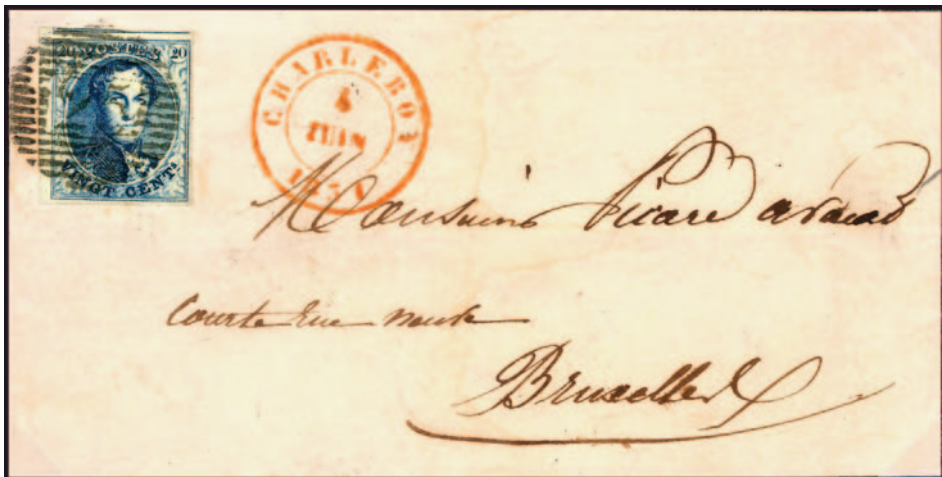 20 POSTES 20
VINGT CENTS
CHARLEROY
JUIN
Monsieur Picard avocat
Courte rue neuve
Bruxelles